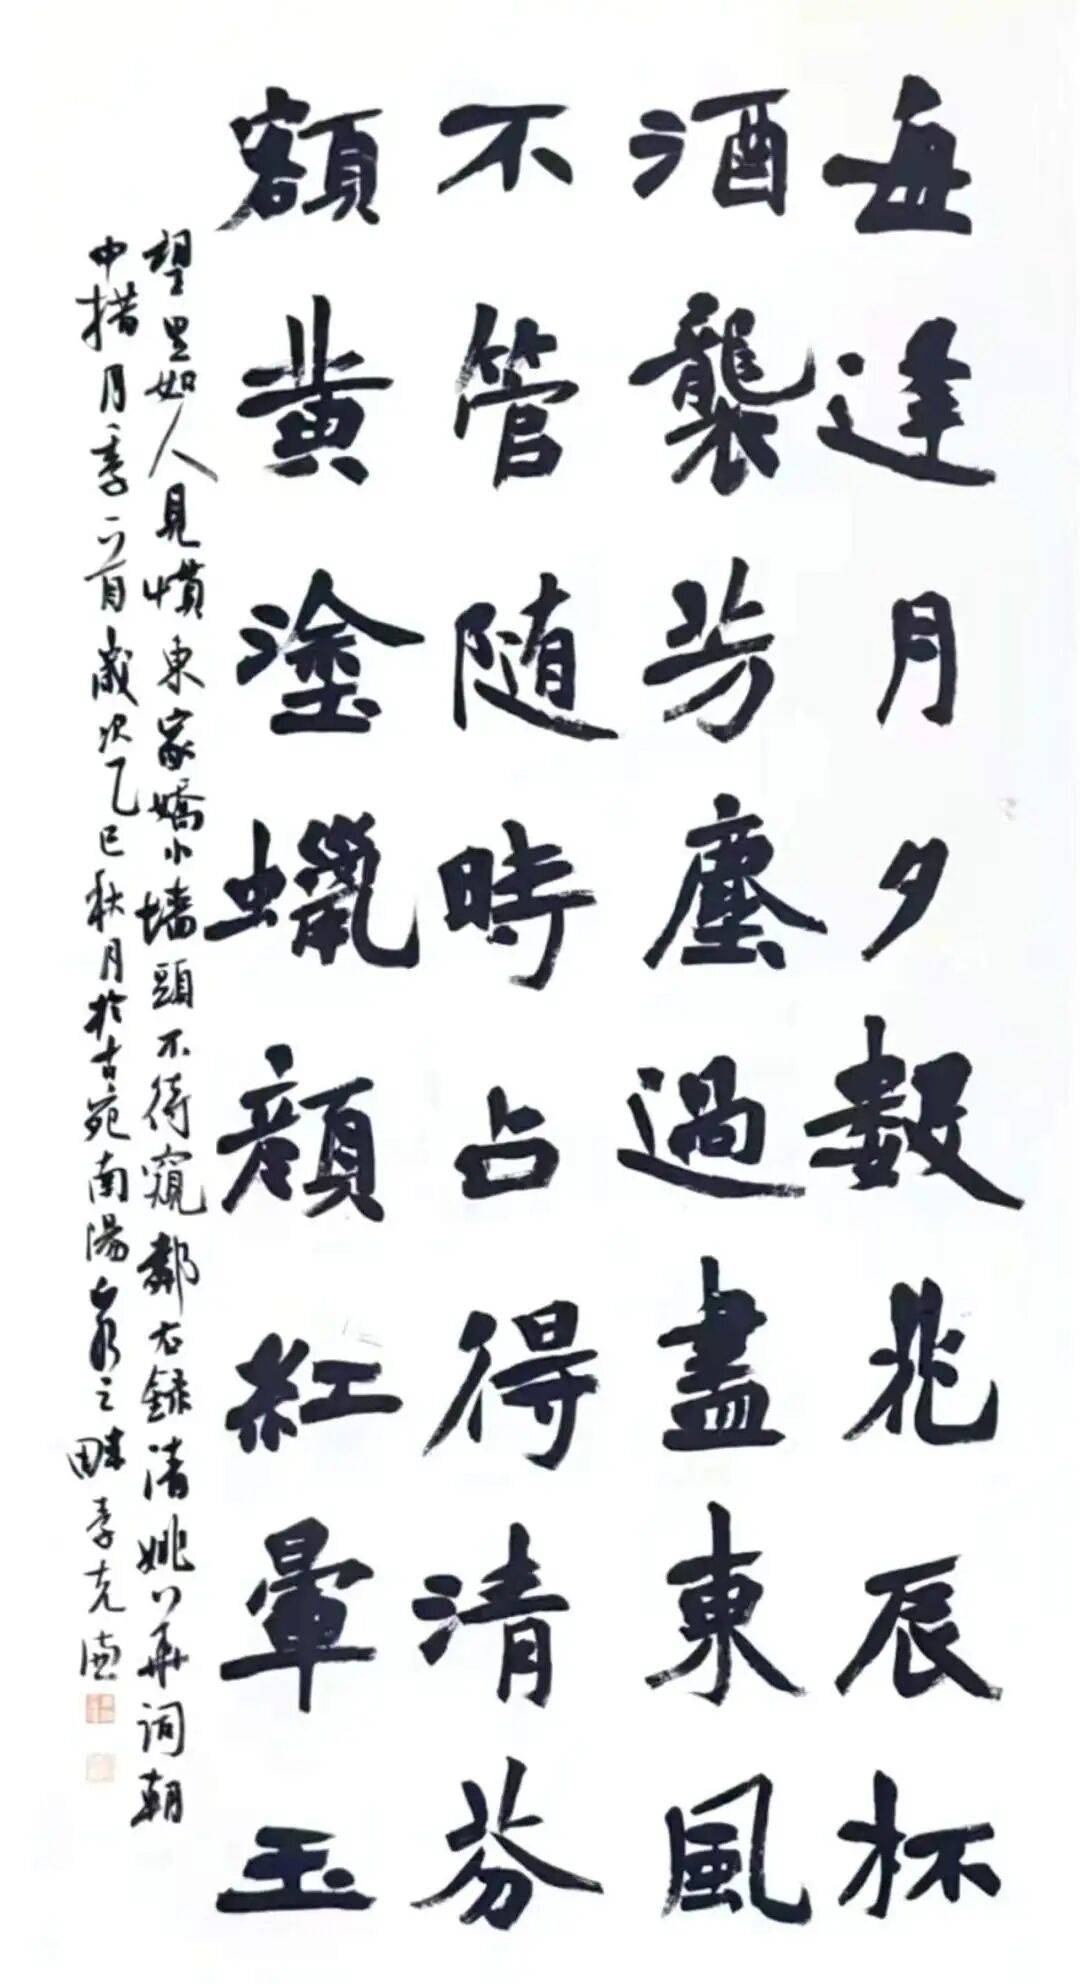 每逢月夕數兆辰杯
酒襲芳塵過盡東風
不管随時占得清芬
額黄塗蠟顔紅暈玉
望里如人見慣東家嬌小墻頭不待窺鄰右録清姚華詞朝
中措月季一首歲次乙巳秋月於古宛南陽白水之畔李克